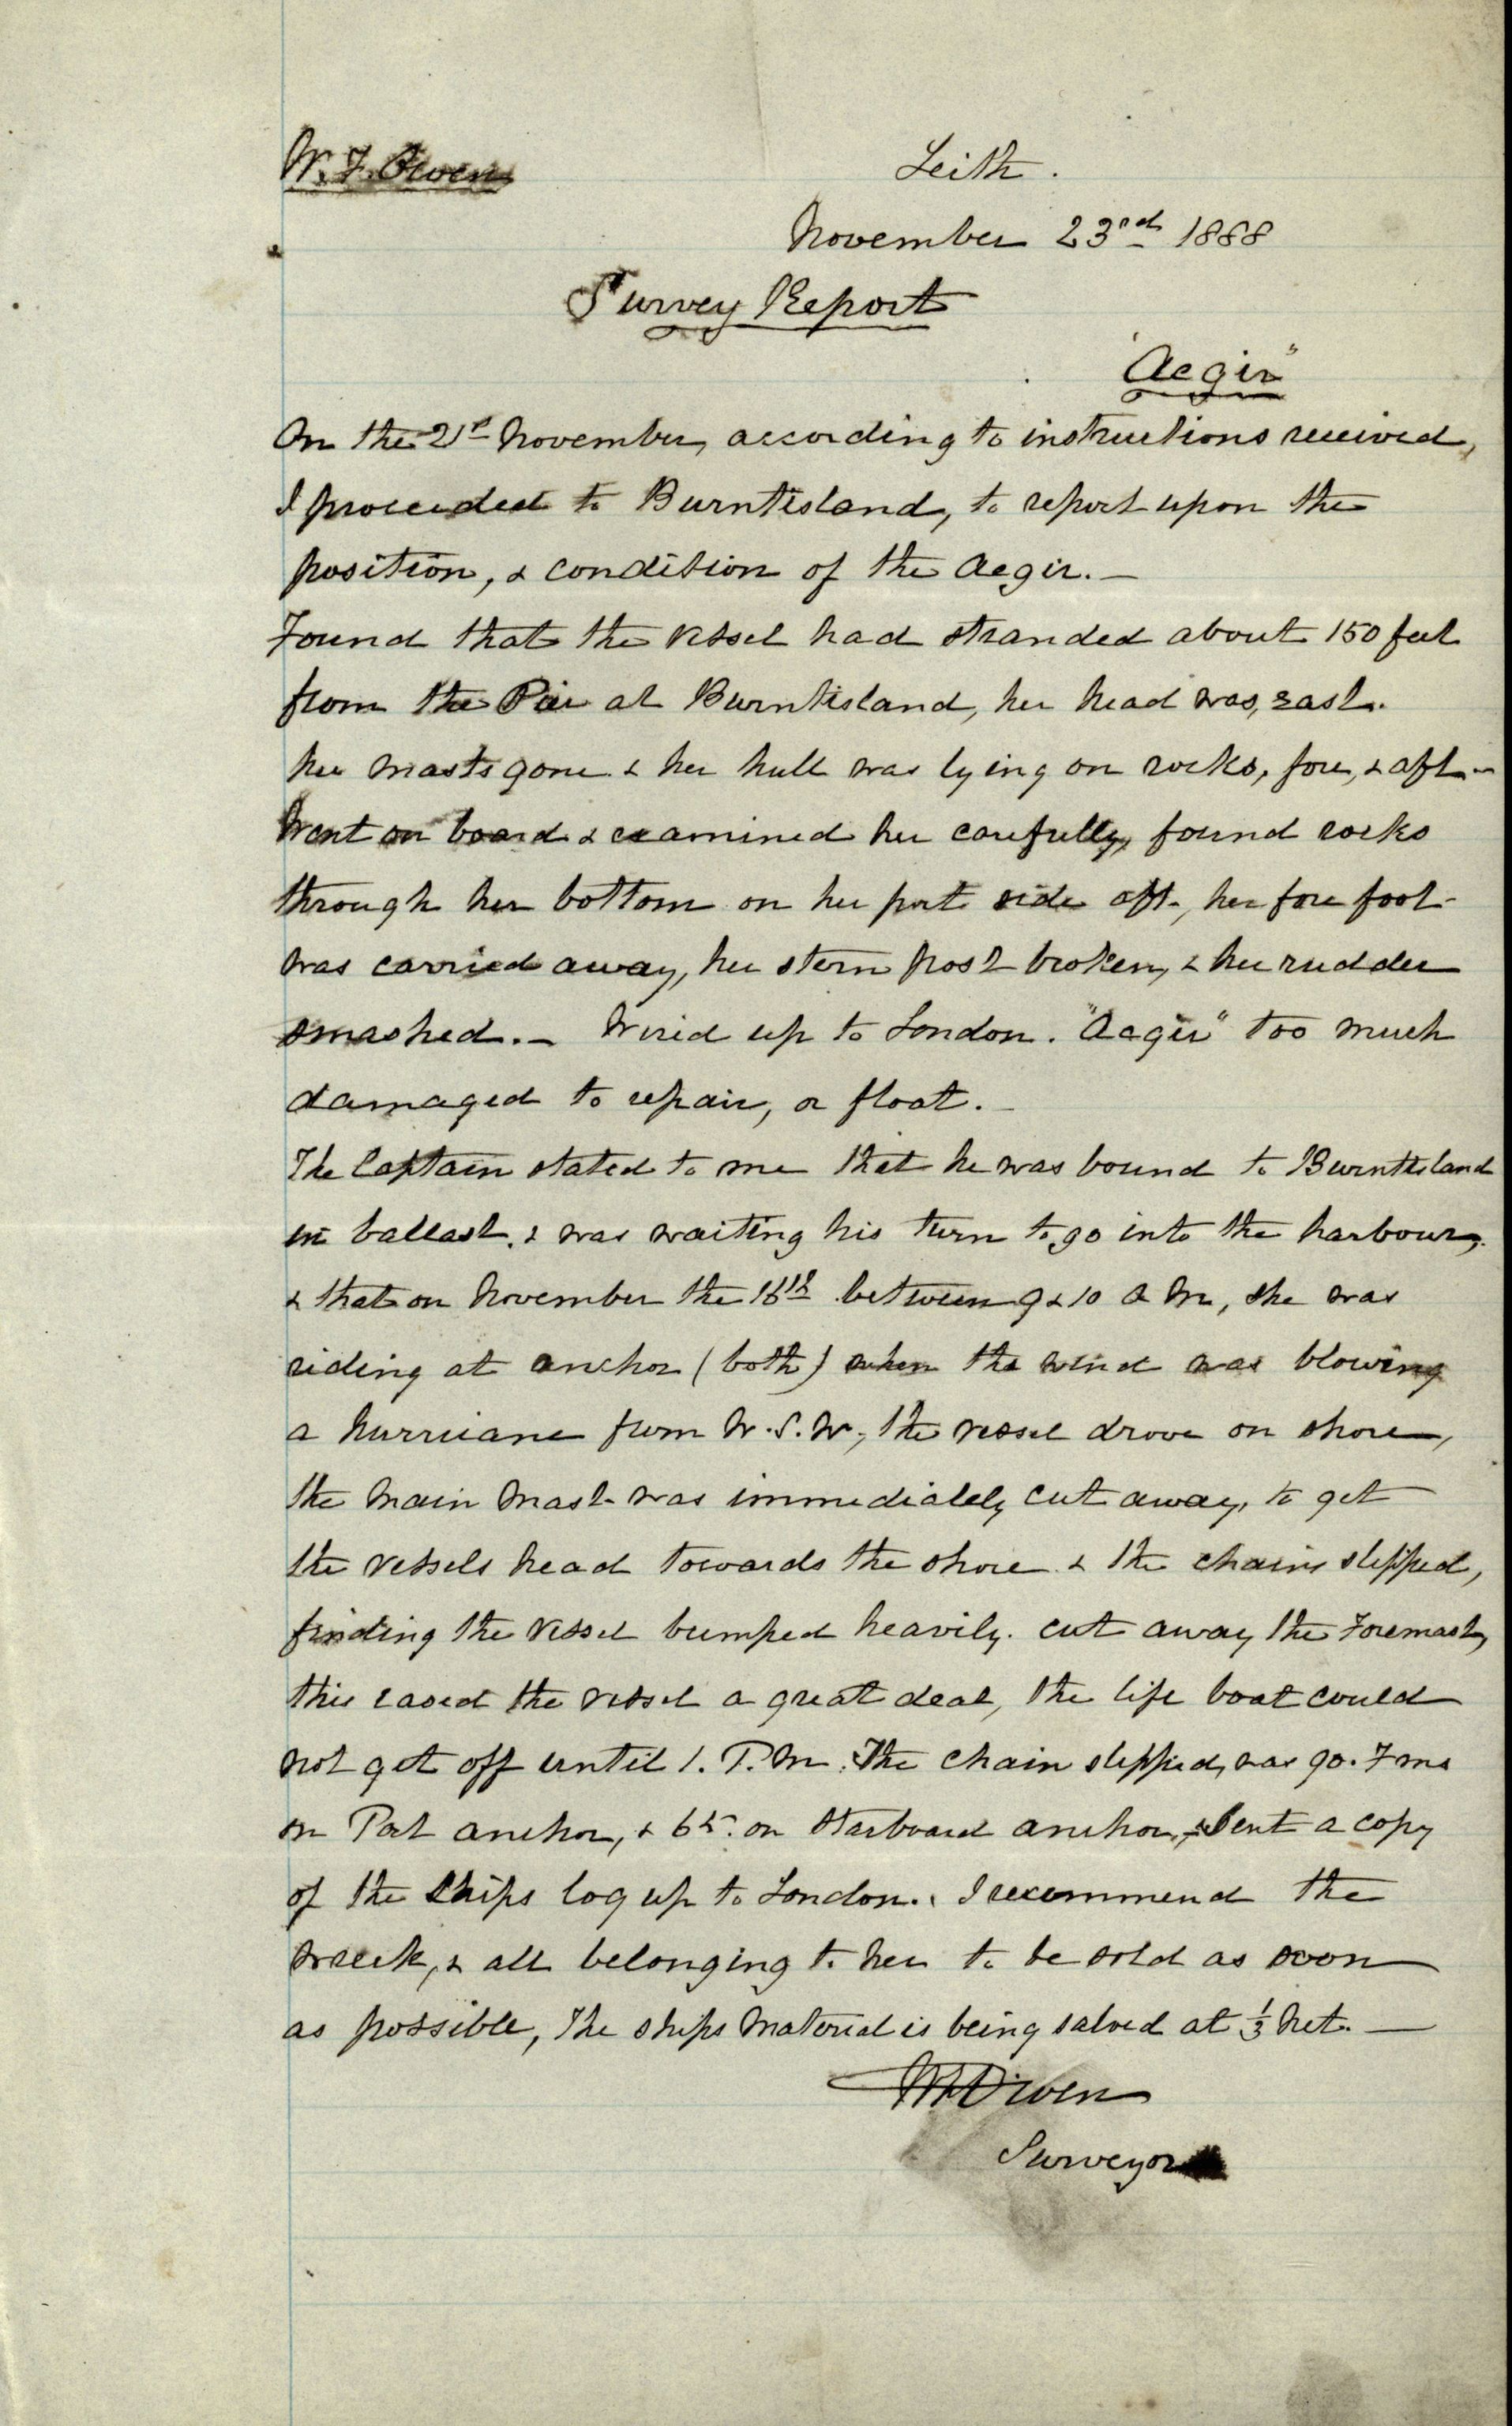 W. F. Owen
Leith.
November 23rd 1888
Survey Report
"Aegir"
On the 21st November, according to instructions received,
I proceeded to Burntisland, to report upon the
position, & condition of the Aegir. —
Found that the vessel had stranded about 150 feet
from the Pier at Burntisland, her head was, East.
her masts gone & her hull was lying on rocks, fore, & aft. —
Went on board & examined her carefully, found rocks
through her bottom on her port side aft, her fore foot
was carried away, her stern post broken, & her rudder
smashed. — Wired up to London. "Aegir" too much
damaged to repair, or float. —
The Captain stated to me that he was bound to Burntisland
in ballast, & was waiting his turn to go into the harbour,
& that on November the 16th between 9 & 10 A M, she was
riding at anchor (both) when the wind was blowing
a hurricane from W.S.W, the vessel drove on shore,
the Main Mast was immediately cut away, to get
the vessels head towards the shore & the chains slipped,
finding the vessel bumped heavily. cut away the Foremast,
this eased the vessel a great deal, the life boat could
not get off until 1. P.M. The chain slipped, was 90. Fms
on Port anchor, & 65. on Starboard anchor, sent a copy
of the Ships log up to London. I recommend the
wreck, & all belonging to her to be sold as soon
as possible, The ships material is being salved at 1/3 net. —
W F Owen
Surveyor